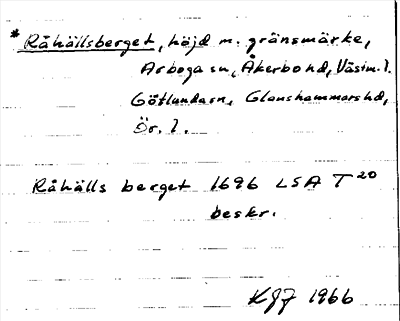 * Råhällsberget, höjd m. gränsmärke,
Arboga sn, Åkerbo hd, Västm. l.
Götlunda sn, Glanshammars hd,
Ör. l.
Råhälls berget 1696 LSA T 20
beskr.
KGJ 1966